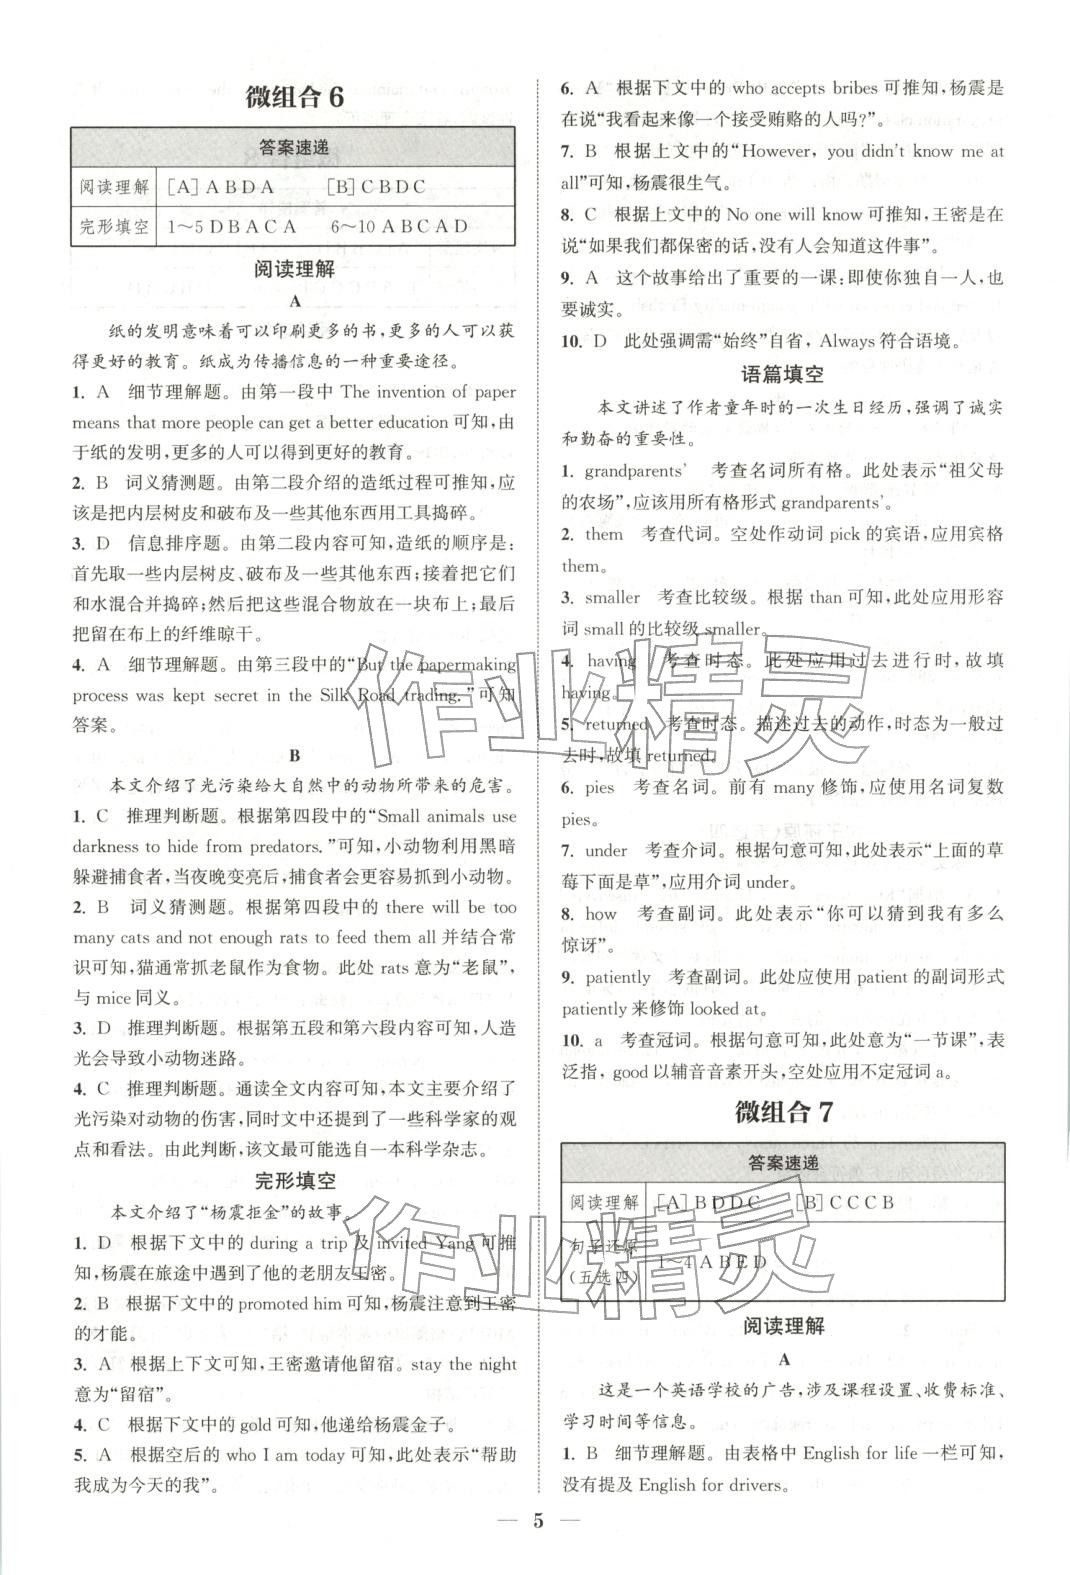 微组合 6
答案速递
阅读理解 [A] A B D A [B] C B D C
完形填空 1～5 D B A C A 6～10 A B C A D
阅读理解
A
纸的发明意味着可以印刷更多的书,更多的人可以获
得更好的教育。纸成为传播信息的一种重要途径。
1. A 细节理解题。由第一段中 The invention of paper
means that more people can get a better education 可知,由
于纸的发明,更多的人可以得到更好的教育。
2. B 词义猜测题。由第二段介绍的造纸过程可推知,应
该是把内层树皮和破布及一些其他东西用工具捣碎。
3. D 信息排序题。由第二段内容可知,造纸的顺序是:
首先取一些内层树皮、破布及一些其他东西;接着把它们
和水混合并捣碎;然后把这些混合物放在一块布上;最后
把留在布上的纤维晾干。
4. A 细节理解题。由第三段中的“But the papermaking
process was kept secret in the Silk Road trading.”可知
答案。
B
本文介绍了光污染给大自然中的动物所带来的危害。
1. C 推理判断题。根据第四段中的“Small animals use
darkness to hide from predators.”可知,小动物利用黑暗
躲避捕食者,当夜晚变亮后,捕食者会更容易抓到小动物。
2. B 词义猜测题。根据第四段中的 there will be too
many cats and not enough rats to feed them all 并结合常
识可知,猫通常抓老鼠作为食物。此处 rats 意为“老鼠”,
与 mice 同义。
3. D 推理判断题。根据第五段和第六段内容可知,人造
光会导致小动物迷路。
4. C 推理判断题。通读全文内容可知,本文主要介绍了
光污染对动物的伤害,同时文中还提到了一些科学家的观
点和看法。由此判断,该文最可能选自一本科学杂志。
完形填空
本文介绍了“杨震拒金”的故事。
1. D 根据下文中的 during a trip 及 invited Yang 可推
知,杨震在旅途中遇到了他的老朋友王密。
2. B 根据下文中的 promoted him 可知,杨震注意到王密
的才能。
3. A 根据上下文可知,王密邀请他留宿。stay the night
意为“留宿”。
4. C 根据下文中的 gold 可知,他递给杨震金子。
5. A 根据空后的 who I am today 可知,此处表示“帮助
我成为今天的我”。
6. A 根据下文中的 who accepts bribes 可推知,杨震是
在说“我看起来像一个接受贿赂的人吗?”。
7. B 根据上文中的“However, you didn't know me at
all”可知,杨震很生气。
8. C 根据上文中的 No one will know 可推知,王密是在
说“如果我们都保密的话,没有人会知道这件事”。
9. A 这个故事给出了重要的一课:即使你独自一人,也
要诚实。
10. D 此处强调需“始终”自省,Always 符合语境。
语篇填空
本文讲述了作者童年时的一次生日经历,强调了诚实
和勤奋的重要性。
1. grandparents' 考查名词所有格。此处表示“祖父母
的农场”,应该用所有格形式 grandparents'。
2. them 考查代词。空处作动词 pick 的宾语,应用宾格
them。
3. smaller 考查比较级。根据 than 可知,此处应用形容
词 small 的比较级 smaller。
4. having 考查时态。此处应用过去进行时,故填
having。
5. returned 考查时态。描述过去的动作,时态为一般过
去时,故填 returned。
6. pies 考查名词。前有 many 修饰,应使用名词复数
pies。
7. under 考查介词。根据句意可知,此处表示“上面的草
莓下面是草”,应用介词 under。
8. how 考查副词。此处表示“你可以猜到我有多么
惊讶”。
9. patiently 考查副词。此处应使用 patient 的副词形式
patiently 来修饰 looked at。
10. a 考查冠词。根据句意可知,此处意为“一节课”,表
泛指,good 以辅音音素开头,空处应用不定冠词 a。
微组合 7
答案速递
阅读理解 [A] B D D C [B] C C C B
句子还原
(五选四) 1～4 A B E D
阅读理解
A
这是一个英语学校的广告,涉及课程设置、收费标准、
学习时间等信息。
1. B 细节理解题。由表格中 English for life 一栏可知,
没有提及 English for drivers。
— 5 —
作业精灵
作业精灵